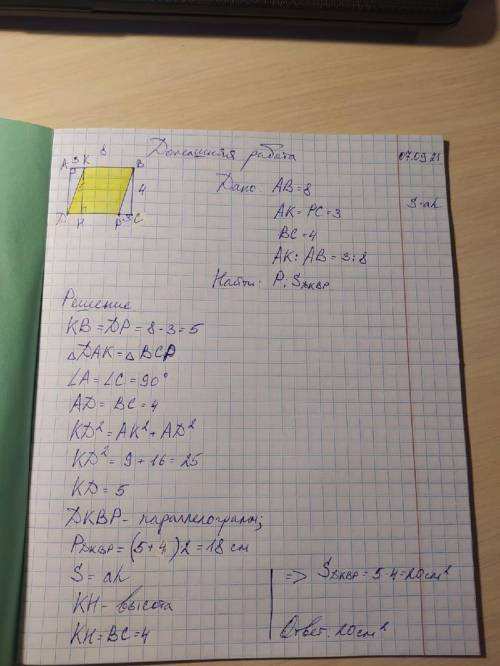 Домашняя работа 07.09.21
A 3 K 8 B
4
D H P 3 C
Дано AB = 8
S = ah
AK = PC = 3
BC = 4
AK : AB = 3 : 8
Найти: P; SDKBP
Решение
KB = DP = 8 - 3 = 5
△DAK = △BCP
∠A = ∠C = 90°
AD = BC = 4
KD² = AK² + AD²
KD² = 9 + 16 = 25
KD = 5
DKBP - параллелограмм;
PDKBP = (5+4)2 = 18 см
S = ah
=> SDKBP = 5·4 = 20 см²
KH - высота
KH = BC = 4
Ответ: 20 см²